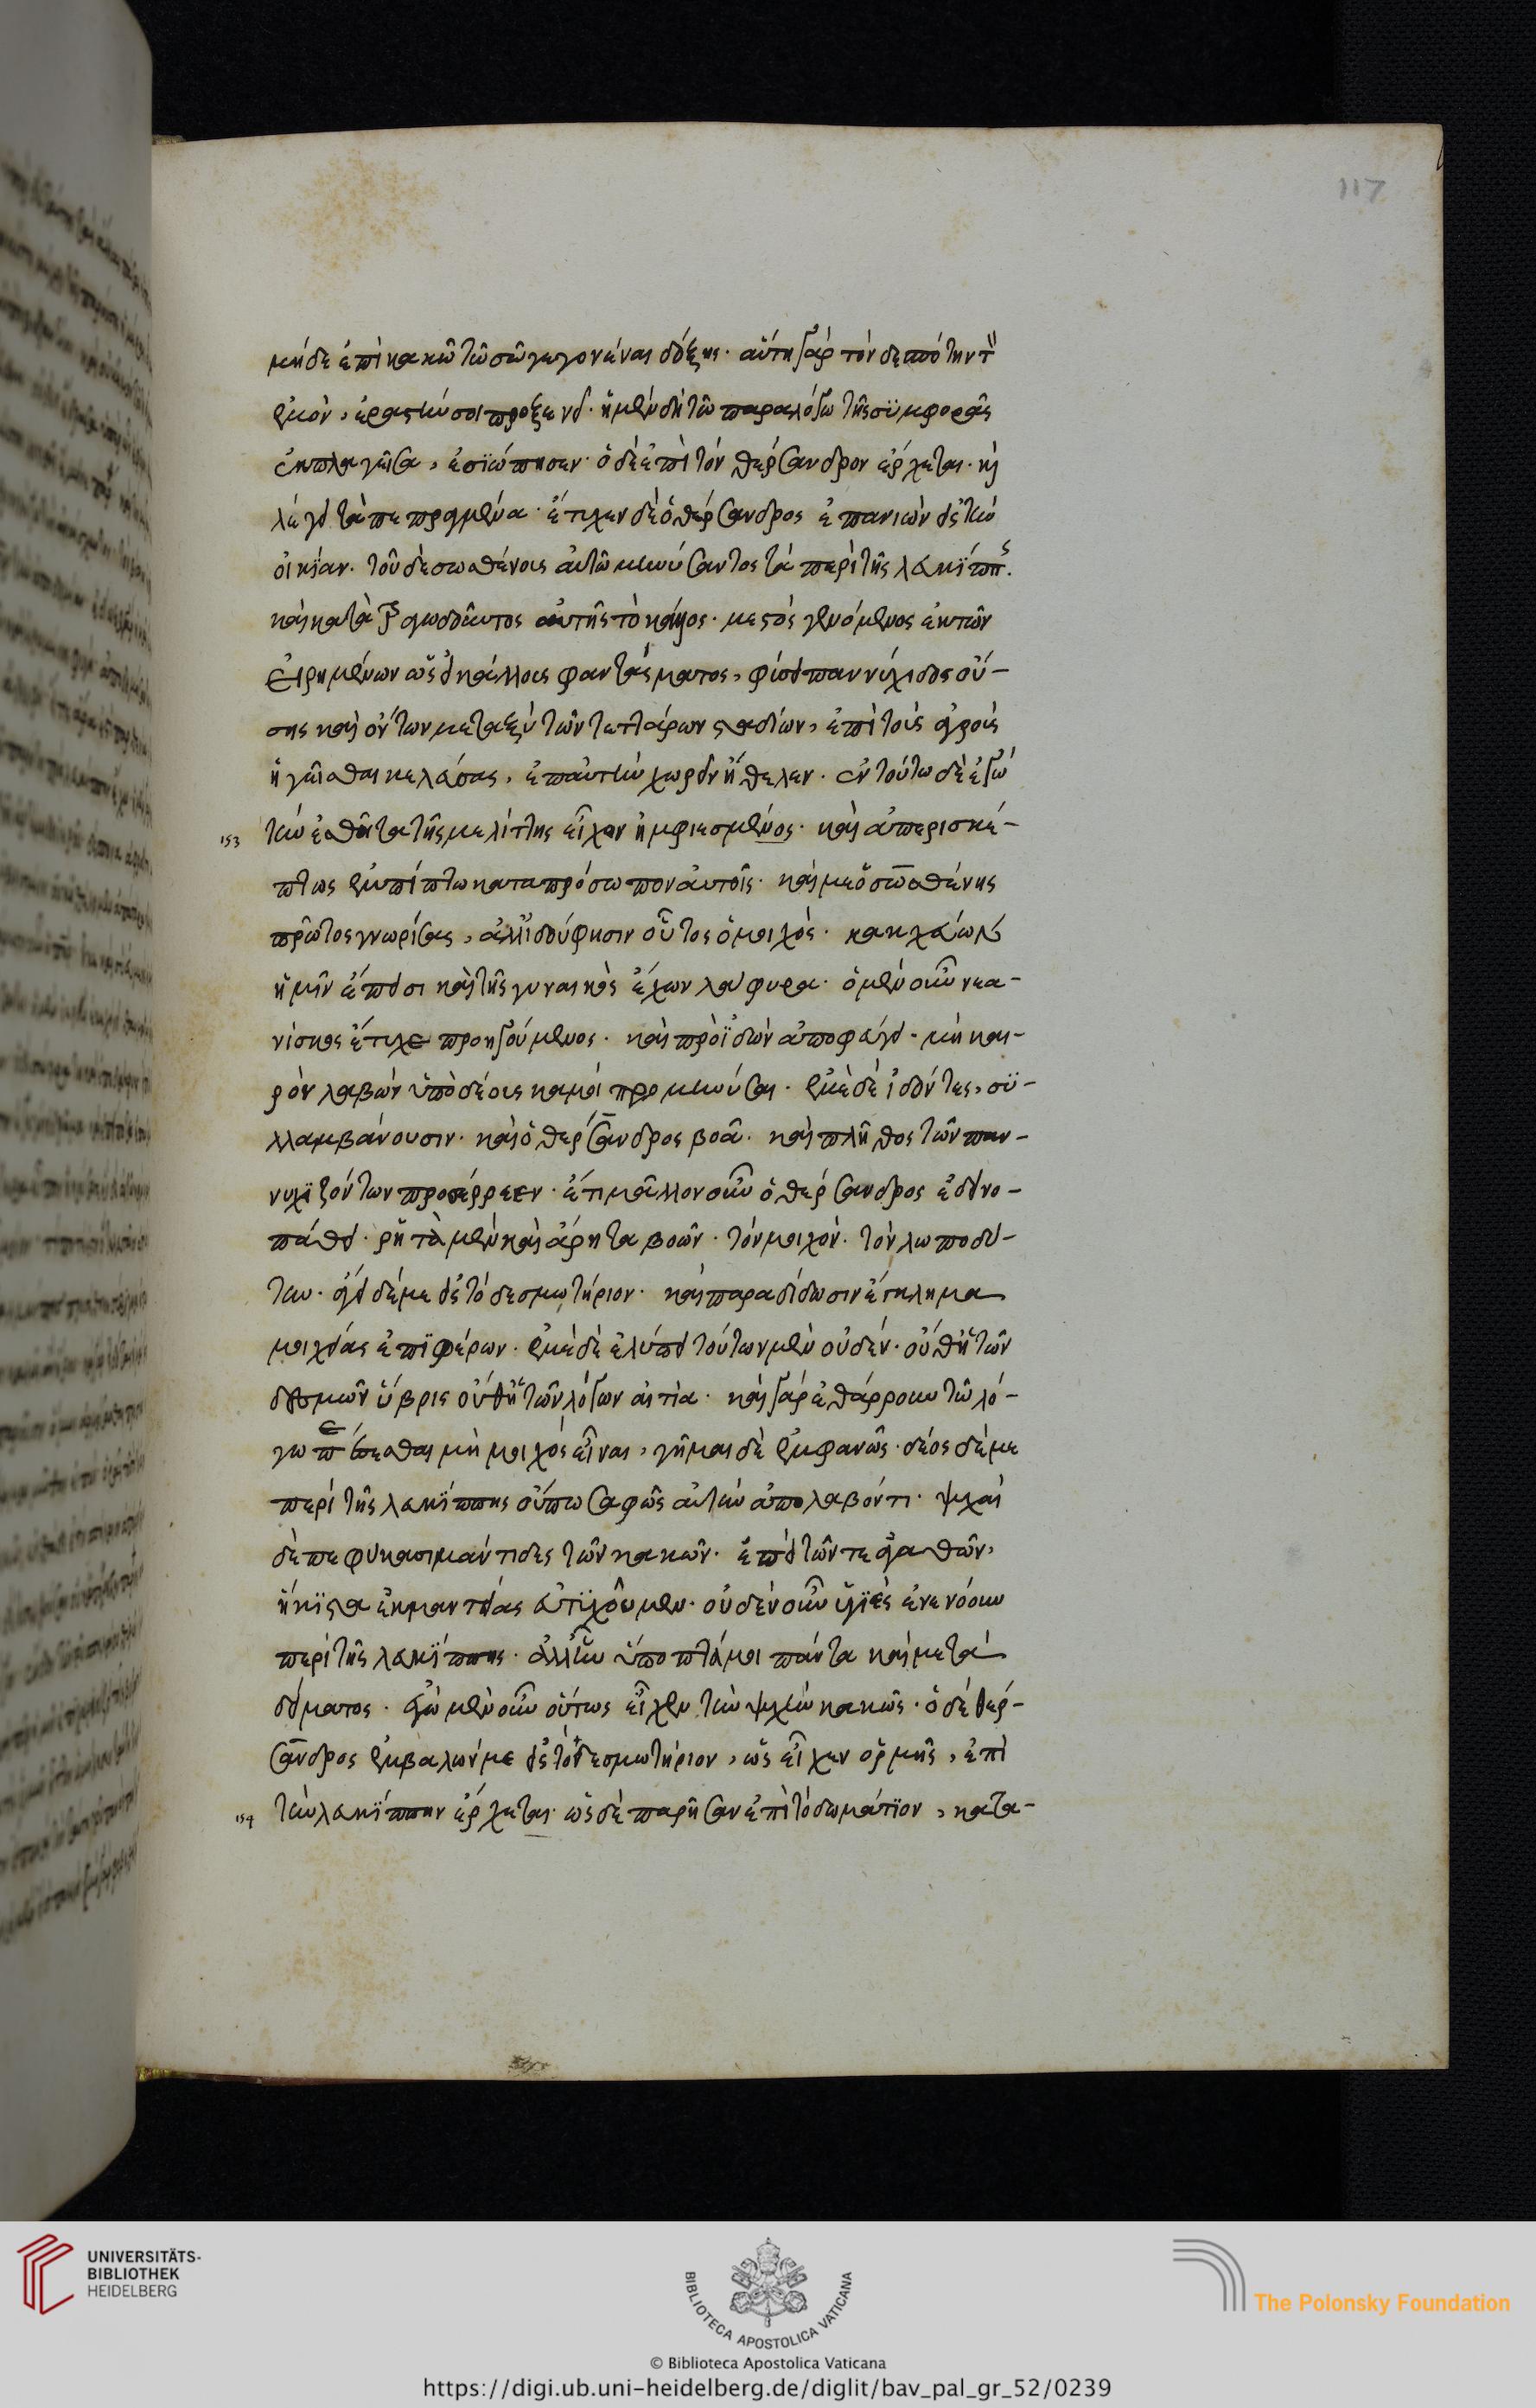 μηδὲ ἐπὶ κακῶ τῶ σῶ γεγονέναι δόξης· αὕτη γὰρ τὸν δεσπότην τὸν
ἐμὸν, ἐραστήν σοι προξενεῖ· ἡ μὲν δὴ τῶ παραλόγω τῆς συμφορᾶς
ἐκπλαγεῖσα, ἐσϊώπησεν· ὁ δὲ ἐπὶ τὸν θέρσανδρον ἔρχεται· καὶ
λέγει τὰ πεπραγμένα· ἔτυχεν δὲ ὁ θέρσανδρος ἐπανιὼν εἰς τὴν
οἰκίαν· τοῦ δὲ σωσθένους αὐτῶ μηνύσαντος τὰ περὶ τῆς λευκίππης·
καὶ κατατραγωδοῦντος αὐτῆς τὸ κάλλος· μεστὸς γενόμενος ἐκ τῶν
εἰρημένων ὡσεὶ κάλλους φαντάσματος, φύσει παννυχίδος οὔ-
σης καὶ ὄντων μεταξὺ τῶν τεττάρων σταδίων, ἐπὶ τοὺς ἀγροὺς
ἡγεῖσθαι κελεύσας, ἐπαυτὴν χωρεῖν ἤθελεν· ἐν τούτω δὲ ἐγὼ
153 τὴν ἐσθῆτα τῆς μελίττης εἶχον ἠμφιεσμένος· καὶ ἀπερισκέ-
πτως ἐμπίπτω καταπρόσωπον αὐτοῖς· καί με ὁ σωσθένης
πρῶτος γνωρίσας, ἀλλ' ἰδού φησιν οὗτος ὁ μοιχὸς· βακχεύων
ἡμῖν ἔπεισι καὶ τῆς γυναικὸς ἔχων λάφυρα· ὁ μὲν οὖν νεα-
νίσκος ἔτυχε προηγούμενος· καὶ προϊδὼν ἀποφεύγει· μὴ και-
ρὸν λαβὼν ὑπὸ δέους καμοὶ προμηνῦσαι· ἐμὲ δὲ ἰδόντες, συ-
λλαμβάνουσιν· καὶ ὁ θέρσανδρος βοᾶ· καὶ πλῆθος τῶν παν-
νυχϊζόντων προσέρρεεν· ἔτι μᾶλλον οὖν ὁ θέρσανδρος ἐδεινο-
πάθει· ῥητὰ μὲν καὶ ἄρητα βοῶν· τὸν μοιχόν· τὸν λωποδύ-
την· ἄγει δέ με εἰς τὸ δεσμωτήριον· καὶ παραδίδωσιν ἔγκλημα
μοιχείας ἐπϊφέρων· ἐμὲ δὲ ἐλύπει τούτων μὲν οὐδέν· οὔθ' ἡ τῶν
δεσμῶν ὕβρις οὔθ' ἡ τῶν λόγων αἰτία· καὶ γὰρ ἐθάρρουν τῶ λό-
γω περιέσεσθαι μὴ μοιχὸς εἶναι, γῆμαι δὲ ἐμφανῶς· δέος δέ με
περὶ τῆς λευκίππης οὔπω σαφῶς αὐτὴν ἀπολαβόντι· ψυχαὶ
δὲ πεφύκασι μάντιδες τῶν κακῶν· ἐπεὶ τῶν τε ἀγαθῶν,
ἥκϊστα ἐκ μαντείας εὐτϋχοῦμεν· οὐδὲν οὖν ὑγϊὲς ἐνενόουν
περὶ τῆς λευκίππης· ἀλλ' ἦν ὕποπτά μοι πάντα καὶ μετὰ
δείματος· ἐγὼ μὲν οὖν οὕτως εἶχον τὴν ψυχὴν κακῶς· ὁ δὲ θέρ-
σανδρος ἐμβαλών με εἰς τὸ δεσμωτήριον, ὡς εἶχεν ὁρμῆς, ἐπὶ
154 τὴν λευκίππην ἔρχεται· ὡς δὲ παρῆσαν ἐπὶ τὸ δωμάτϊον, κατα-
117
UNIVERSITÄTS-
BIBLIOTHEK
HEIDELBERG
BIBLIOTECA APOSTOLICA VATICANA
© Biblioteca Apostolica Vaticana
The Polonsky Foundation
https://digi.ub.uni-heidelberg.de/diglit/bav_pal_gr_52/0239